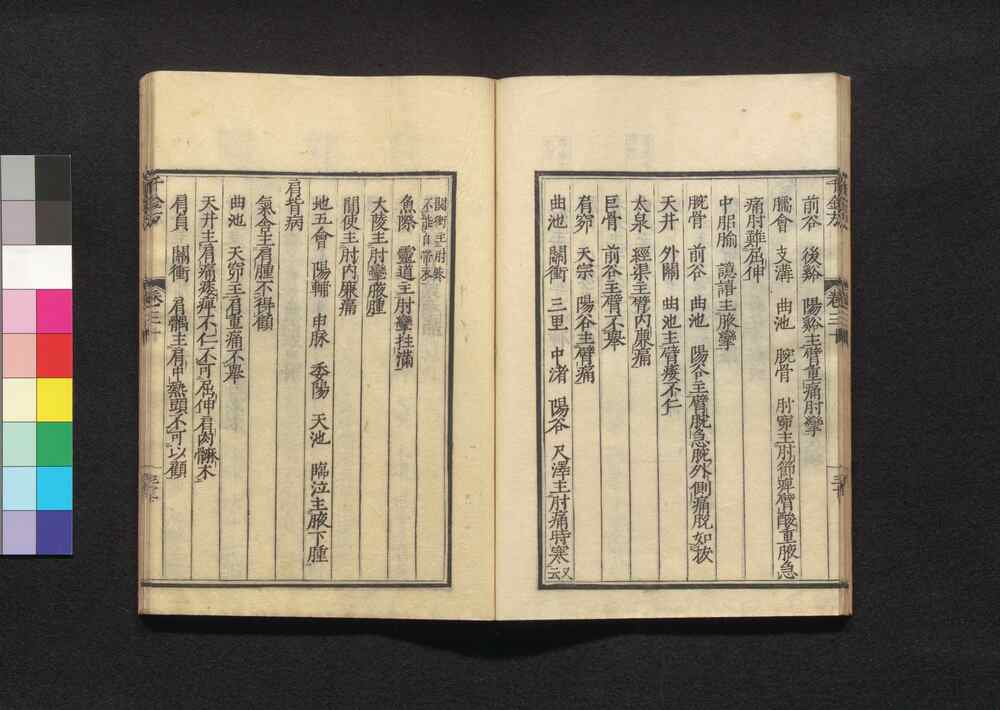 前谷　後谿　陽谿主臂重痛肘攣
臑會　支溝　曲池　腕骨　肘窌主肘節痺臂酸重腋急
痛肘難屈伸
中膂腧　譩譆主腋攣
腕骨　前谷　曲池　陽谷主臂腕急腕外側痛脫如拔
天井　外關　曲池主臂痿不仁
太泉　經渠主臂內廉痛
巨骨　前谷主臂不舉
肩窌　天宗　陽谷主臂痛
曲池　關衝　三里　中渚　陽谷　尺澤主肘痛時寒又云
關衝主肘疼不能自帶衣
魚際　靈道主肘攣拄滿
大陵主肘攣腋腫
間使主肘內廉痛
地五會　陽輔　申脉　委陽　天池　臨泣主腋下腫
肩背病
氣舍主肩腫不得顧
曲池　天窌主肩重痛不舉
天井主肩痛痿痺不仁不可屈伸肩肉麻木
肩貞　關衝　肩髃主肩中熱頭不可以顧
千金方
卷三十